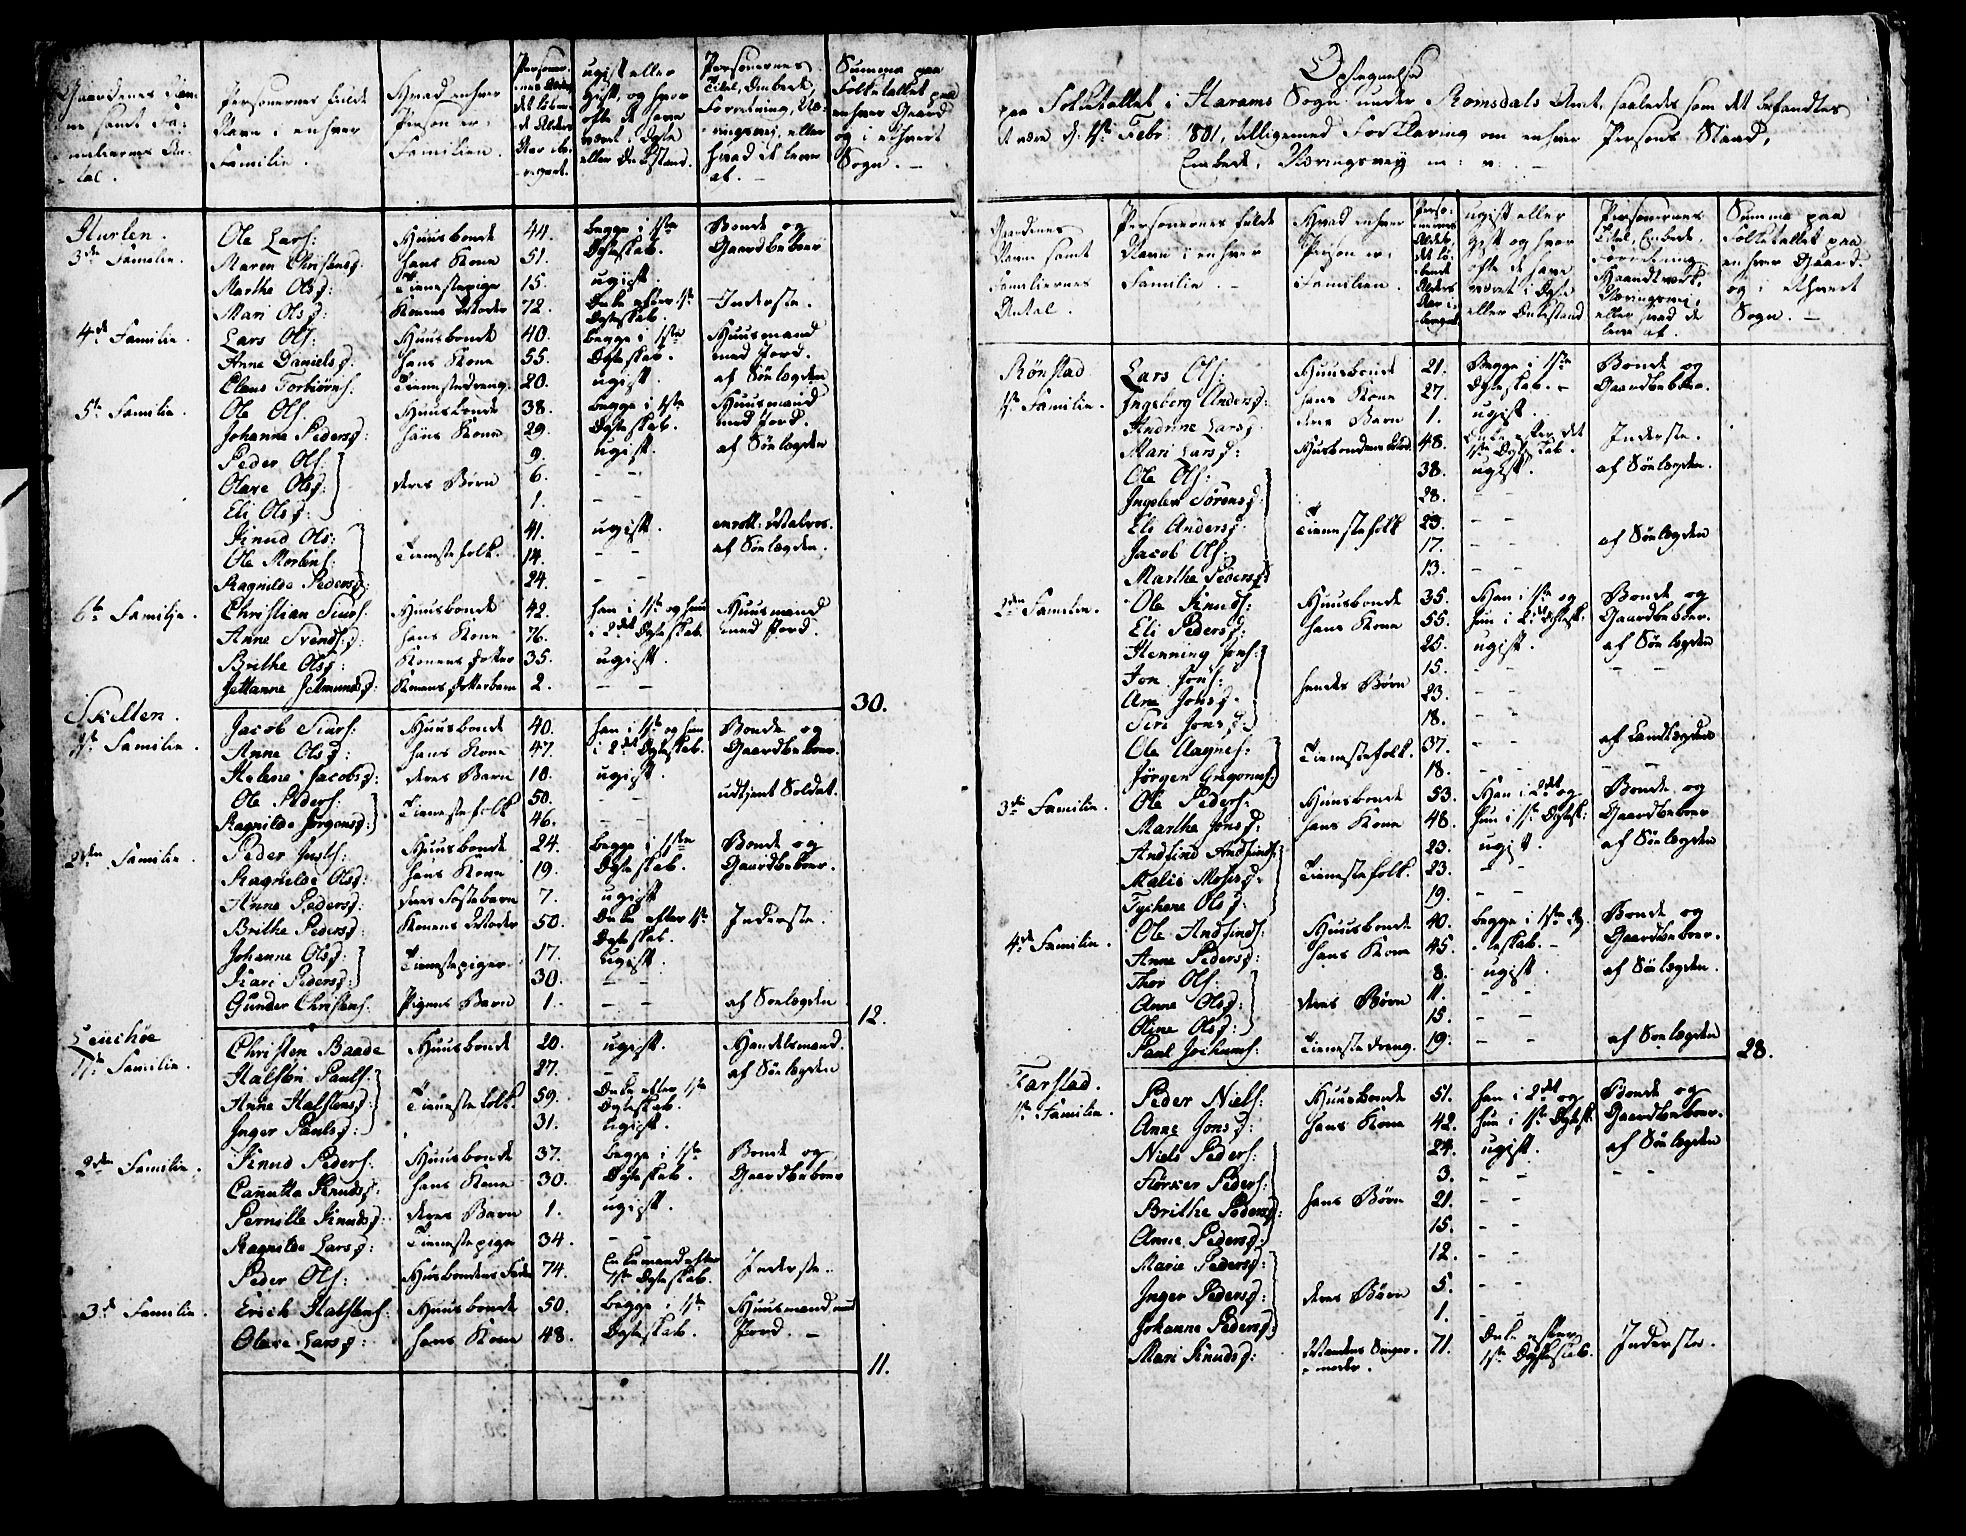 Personernes fulde
Navn i enhver
Familie.
Hvad enhver
Person er i
Familien.
ugift eller
gift, og hvor
ofte de have
været i Ægte
eller Enkestand.
Personernes
Titel, Embede,
Forretning, Næ-
ringsvej, eller
hvad de leve
af. –
Summa paa
Folketallet paa
enhver Gaard
og i ethvert
Sogn. –
3de Familie.
Ole Lars: Huusbonde 44. begge i 1ste Bonde og
Maren Christensd: hans Kone 51. Ægteskab. Gaardbeboer
Marthe Olsd: Tienestepige 15. ugift
Mari Olsd: Konens Moder 72. Enke efter 1ste Ægteskab. Inderste.
4de Familie. Lars Ols: Huusbonde 40. begge i 1ste Huusmand
Anne Danielsd: hans Kone 55. Ægteskab. med Jord.
Torbiørns: Tienestedreng. 20. ugift. af Søelægden
5te Familie. Ole Ols: Huusbonde 38. begge i 1ste Huusmand
Johanne Pedersd: hans Kone 29. Ægteskab. med Jord.
Peder Ols: 9. ugift. af Søelægden
Olave Olsd: deres Børn 6. – –
Eli Olsd: 1. – –
Knud Ols: 41. ugift. enroll: Matros.
Ole Mortens: Tienestefolk 14. – – af Søelægden.
Ragnilde Pedersd: 24. – –
6te Familie. Christian Siurs: Huusbonde 42. han i 1ste og hun Huusmand
Anne Svendsd: hans Kone 76. i 2det Ægteskab. med Jord.
Brithe Olsd: Konens Dotter 35. ugift.
Konens Dotterbarn 2. – –
30.
Skelten.
1ste Familie. Jacob Siurs: Huusbonde 40. han i 1ste og hun Bonde og
Anne Olsd: hans Kone 47. i 2det Ægteskab. Gaardbeboer.
Helene Jacobsd: deres Barn 10. ugift.
Ole Peders: Tienestefolk 50. – – udtient Soldat.
Ragnilde Jørgensd: 46. – –
2den Familie. Peder Ols: Huusbonde 24. begge i 1ste Bonde og
Ragnilde Olsd: hans Kone 19. Ægteskab. Gaardbeboer.
Anne Pedersd: deres Fosterbarn 7. ugift
Brithe Pedersd: Konens Moder 50. Enke efter 1ste Ægteskab. Inderste.
Johanne Olsd: Tienestepiger 17. ugift.
Kari Pedersd: 30. – –
Gunder Christens: Pigens Barn 1. – – af Søelægden
12.
1ste Familie. Christen Baade Huusbonde 20. ugift. Handelsmand.
Halsten Pauls: 27. – – af Søelægden
Anne Halstensd: Tienestefolk. 59. Enke efter 1ste Ægteskab.
Inger Paulsd: 31. ugift.
2den Familie. Knud Peders: Huusbonde 37. begge i 1ste Bonde og
Canutta Knudsd: hans Kone 30. Ægteskab. Gaardbeboer
Pernille Knudsd: deres Barn 1. ugift.
Ragnilde Larsd: Tienestepige 34. – –
Peder Ols: Husbondens Fader 74. Enkemand efter 1ste Ægteskab. Inderste.
3de Familie. Erich Halstens: Huusbonde 50. begge i 1ste Huusmand med
Olave Larsd: hans Kone 48. Ægteskab. Jord. –
11.
Optegnelse
paa Folketallet i Harams Sogn under Romsdals Amt, saaledes som det befandtes
at være d: 1ste Febr: 1801, tilligemed Forklaring om enhver Persons Stand,
Embede, Næringsvej m: v: –
Gaardenes
Navne samt
Familiernes
Antal.
Personernes fulde
Navn i enhver
Familie. –
Hvad enhver
Person er i
Familien.
ugift eller
gift og hvor
ofte de have
været i Ægte
eller Enkestand
Personernes
Titel, Embede,
Forretning,
Haandverk,
Næringsvei,
eller hvad de
leve af.
Summa paa
Folketallet paa
enhver Gaard
og i ethvert
Sogn. –
Rønstad Lars Ols: Huusbonde 21. Begge i 1ste Bonde og
1ste Familie. Ingeborg Andersd: hans Kone 27. Ægteskab. – Gaardbeboer.
Andrine Larsd: deres Barn 1. ugift.
Mari Larsd: Husbondens Mod: 48. Enke efter det 1ste Ægteskab. Inderste.
Ole Ols: 38. ugift. af Søelægden.
Sørensd: 28. – –
Eli Andersd: Tienestefolk 23. – –
Jacob Ols: 17. – – af Søelægden
Marthe Pedersd: 13. – –
2den Familie. Ole Knuds: Huusbonde 35. Han i 1ste og Bonde og
Eli Pedersd: hans Kone 55. hun i 2det Ægtesk: Gaardbeboer.
Henning Jons: 25. ugift. af Søelægden
Jon Jons: hendes Børn 15. – – – –
Ane Jonsd: 23. – –
Siri Jonsd: 18. – –
Ole Aagnes: Tienestefolk. 37. – – af Landlægden
Jørgen Gregorius: 18. – – – –
3de Familie. Ole Peders: Huusbonde 53. Han i 2det og Bonde og
Marthe Jonsd: hans Kone 48. hun i 1ste Ægtesk: Gaardbeboer
Andfind Andfinds: 23. ugift. af Søelægden
Malie Mosesd: Tienestefolk. 23. – –
Olsd: 19. – –
4de Familie. Ole Andfinds: Huusbonde 40. begge i 1ste Æg- Bonde og
Anne Pedersd: hans Kone 45. teskab. – Gaardbeboer.
Thor Ols: 8. ugift. af Søelægden.
Anne Olsd: deres Børn 11. – –
Oline Olsd: 15. – –
Paul Jochums: Tienestedreng. 19. – – af Søelægden
28.
Farstad.
1ste Familie. Peder Niels: Huusbonde 51. han i 2det og Bonde og
Anne Jonsd: hans Kone 42. hun i 1ste Ægtesk: Gaardbeboer.
Niels Peders: 24. ugift. af Søelægden
Størker Peders: 3. – – – –
Brithe Pedersd: hans Børn 21. – –
Anne Pedersd: 15. – –
Marie Pedersd: 12. – –
Inger Pedersd: deres Børn 5. – –
Johanne Pedersd: 1. – –
Mari Knudsd: Mandens Sviger-moder. 71. Enke efter 1ste Ægteskab. Inderste.